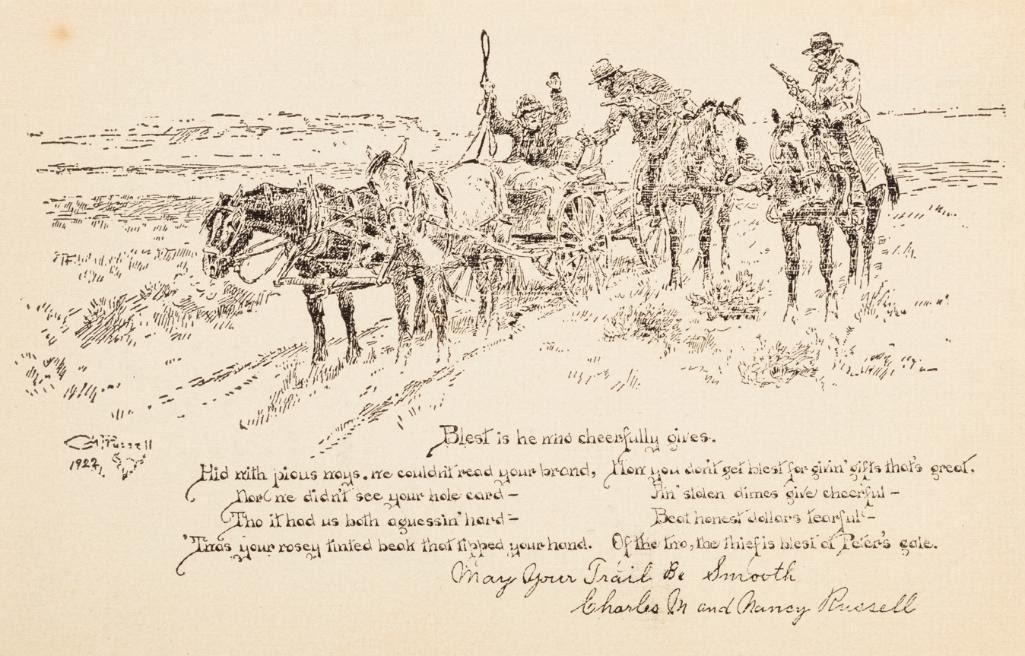 CM Russell
1922
Blest is he who cheerfully gives.
Hid with pious ways, we couldn't read your brand,
Nor we didn't see your hole card–
Tho it had us both aguessin' hard–
'Twas your rosey tinted beak that tipped your hand.
Now you don't get blest for givin' gifts that's great,
An' stolen dimes give cheerful–
Beat honest dollars tearful–
Of the two, the thief is blest at Peter's gate.
May Your Trail Be Smooth
Charles M and Nancy Russell